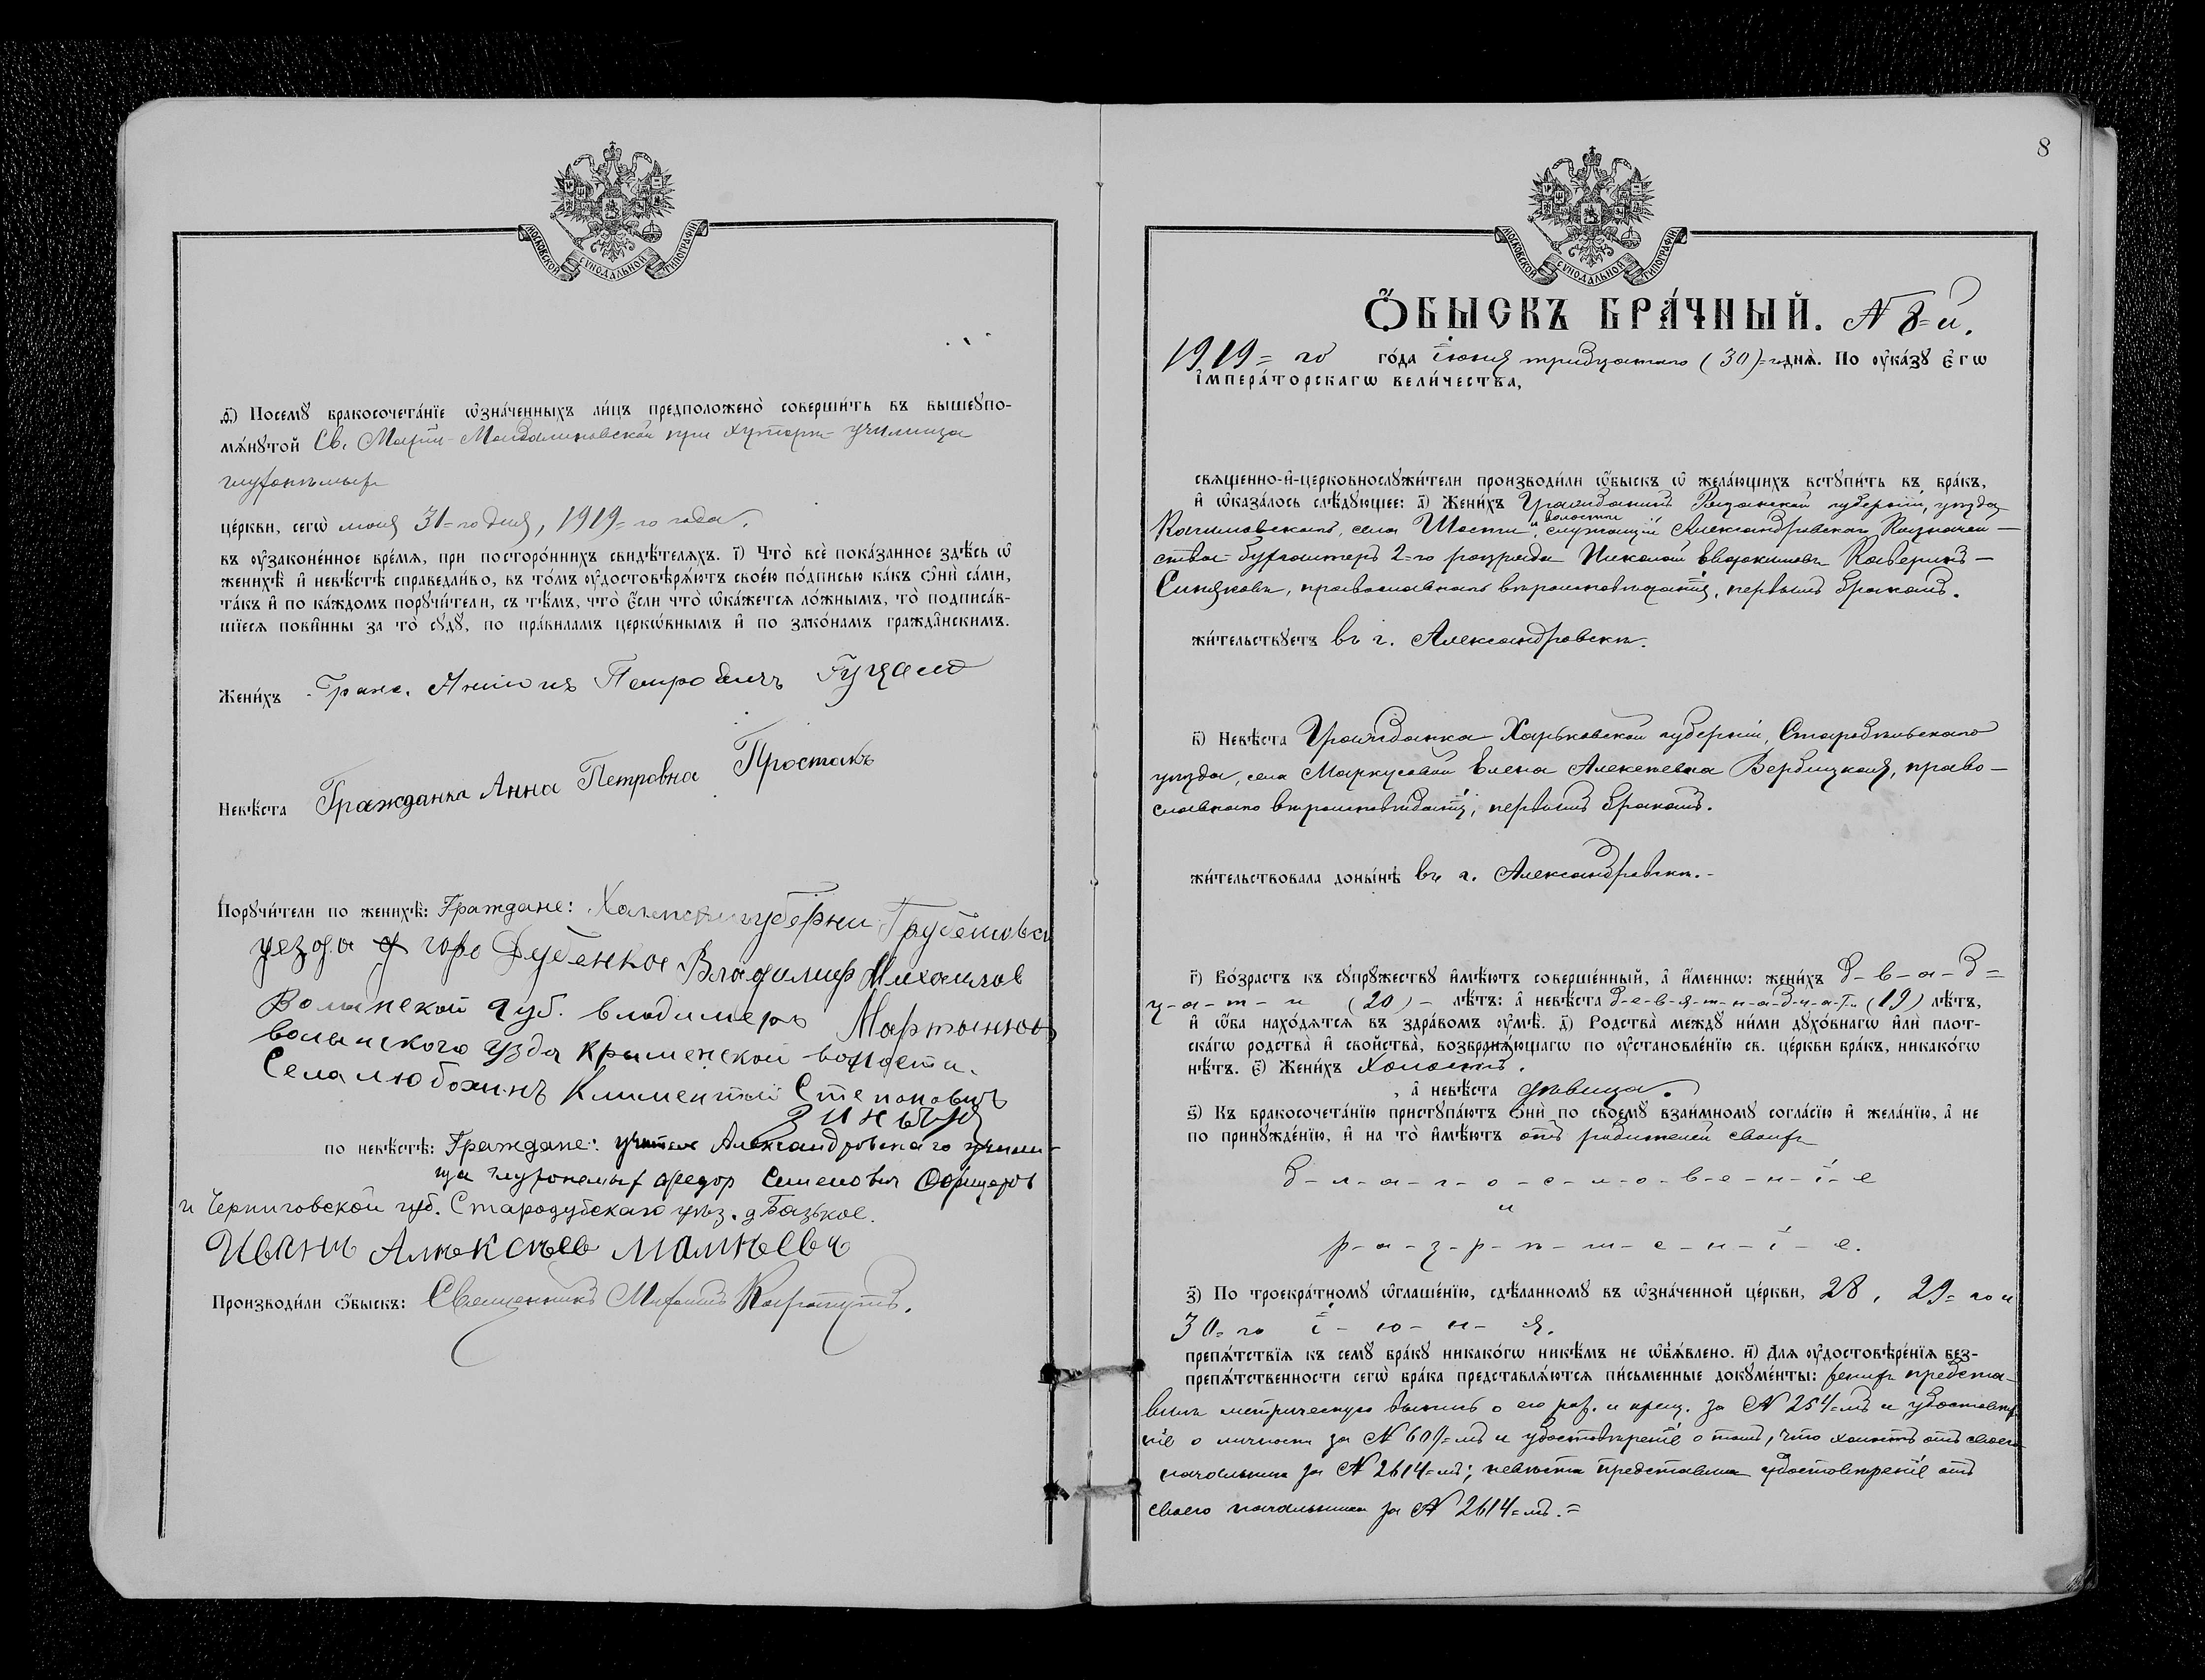 МОСКОВСКОЙ СѴНОДАЛЬНОЙ ТИПОГРАФІИ
ѳ҃) Посемꙋ̀ бракосочета́нїе ѡ҆зна́ченныхъ ли́цъ предположено̀ соверши́ть въ вышеꙋпо-
мѧ́нꙋтой Св. Маріи-Магдалиновской при хуторѣ училища
глухонѣмыхъ
це́ркви, сегѡ̀ мая 31=го дня, 1919=го года.
въ ᲂу҆зако́ненное вре́мѧ, при посторо́ннихъ свидѣ́телѧхъ. і҃) Что̀ всѐ пока́занное здѣ́сь ѡ҆
женихѣ̀ и҆ невѣ́стѣ справедли́во, въ то́мъ ᲂу҆достовѣрѧ́ютъ свое́ю по́дписью ка́къ ѻ҆нѝ са́ми,
та́къ и҆ по ка́ждомъ порꙋчи́тели, съ тѣ́мъ, что̀ є҆́сли что̀ ѡ҆ка́жетсѧ ло́жнымъ, то̀ подписа́в-
шїесѧ пови́нны за то̀ сꙋдꙋ̀, по пра́виламъ церко́внымъ и҆ по зако́намъ гражда́нскимъ.
Жени́хъ Граж. Антонъ Петровичъ Гуцало
Невѣ́ста Гражданка Анна Петровна Простакъ
Порꙋчи́тели по женихѣ̀: Граждане: Холмской губерни Грубешовск
уезда горо Дубенкос Владимир Михайлов
Волынской губ. владимеръ Мартынюкъ
волынского узда Кременской волости.
Села любохинъ Климентий Степановичъ
Зинчук
по невѣ́стѣ: Граждане: учитель Александровскаго учили-
ща глухонемых Федор Семенович Офицеров
и Черниговской губ. Стародубскаго уѣз. д Базькое.
Иванъ Алѣксѣев малѣевъ
Производи́ли ѻ҆́быскъ: Священникъ Михаилъ
8
МОСКОВСКОЙ СѴНОДАЛЬНОЙ ТИПОГРАФІИ
Ѻ҆́БЫСКЪ БРА́ЧНЫЙ. N 8=й.
1919=го го́да іюня тридцатаго (30)=го днѧ̀. По ᲂу҆ка́зꙋ є҆гѡ̀
і҆мпера́торскагѡ вели́чества,
свѧщенно-и҆-церковнослꙋжи́тели производи́ли ѻ҆́быскъ ѡ҆ жела́ющихъ встꙋпи́ть въ бра́къ,
и҆ ѡ҆каза́лось слѣ́дꙋющее: а҃) Жени́хъ Гражданинъ Рязанской губерніи, уѣзда
Касимовскаго, села Шости и волости, служащій Александровскаго Казначей-
ства бухгалтеръ 2-го разряда Николай Евдокимовъ Каверинъ-
Синяковъ, православнаго вѣроисповѣданія, первымъ бракомъ.
жи́тельствꙋетъ въ г. Александровскѣ.
в҃) Невѣ́ста Гражданка Харьковской губерніи, Старобѣльскаго
уѣзда, села Маркусовой Елена Алексѣевна Вербицкая, право-
славнаго вѣроисповѣданія, первымъ бракомъ.
жи́тельствовала доны́нѣ въ г. Александровскѣ.-
г҃) Во́зрастъ къ сꙋпрꙋ́жествꙋ и҆мѣ́ютъ соверше́нный, а҆ и҆́меннѡ: жени́хъ д-в-а-д=
ц-а-т-и (20)- лѣ́тъ: а҆ невѣ́ста д-е-в-я-т-н-а-д-ц-а-т-и (19) лѣ́тъ,
и҆ ѻ҆́ба нахо́дѧтсѧ въ здра́вомъ ᲂу҆мѣ̀. д҃) Родства̀ междꙋ̀ ни́ми дꙋхо́внагѡ и҆лѝ плот-
ска́гѡ родства̀ и҆ сво́йства, возбранѧ́ющагѡ по ᲂу҆становле́нїю св. це́ркви бра́къ, никако́гѡ
нѣ́тъ. є҃) Жени́хъ Холостъ.
, а҆ невѣ́ста дѣвица.
ѕ҃) Къ бракосочета́нїю пристꙋпа́ютъ ѻ҆нѝ по своемꙋ̀ взаи́мномꙋ согла́сїю и҆ жела́нїю, а҆ не
по принꙋжде́нїю, и҆ на то̀ и҆мѣ́ютъ отъ родителей своихъ
б-л-а-г-о-с-л-о-в-е-н-і-е
и
р-а-з-р-ѣ-ш-е-н-і-е.
з҃) По троекра́тномꙋ ѡ҆глаше́нїю, сдѣ́ланномꙋ въ ѡ҆зна́ченной це́ркви, 28, 29=го и
30=го і-ю-н-я.
препѧ́тствїѧ къ семꙋ̀ бра́кꙋ никако́гѡ никѣ́мъ не ѡ҆б̾ѧ́влено. и҃) Длѧ ᲂу҆достовѣре́нїѧ без-
препѧ́тственности сегѡ̀ бра́ка представлѧ́ютсѧ пи́сьменные докꙋме́нты: женихъ предста-
вилъ метрическую выпись о его рожд. и крещ. за N 254=мъ и удостовѣре-
ніе о личности за N 601=мъ и удостовѣреніе о томъ, что холостъ отъ своего
начальника за N 2614=мъ; невѣста представила удостовѣреніе отъ
своего начальника за N 2614=мъ.=